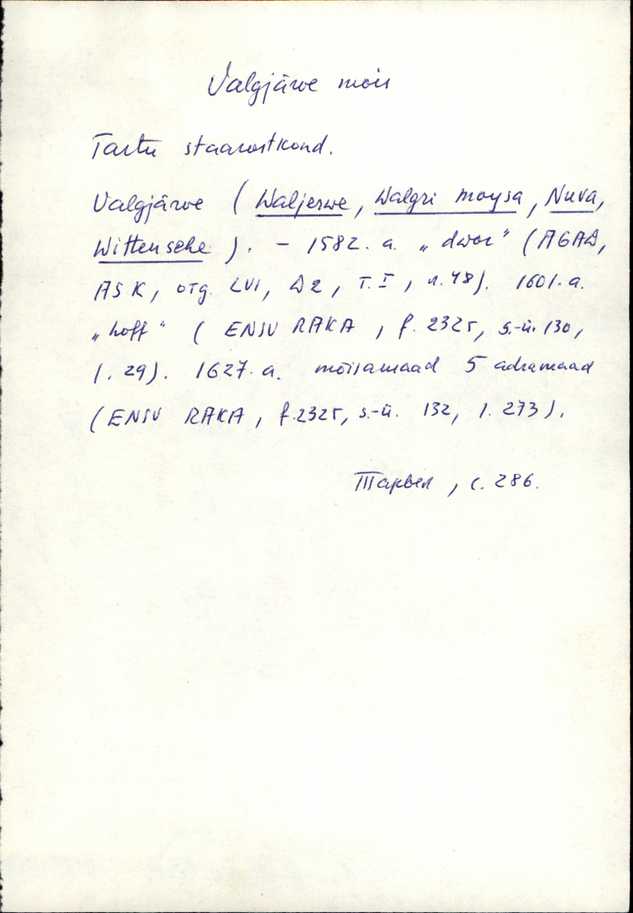 Valgjärve mõis
Tartu staarostkond.
Valgjärve (Waljerwe, Walgri moysa, Nuva,
Wittensehe). - 1582. a. „dwor" (AGAD,
ASK, отд. LVI, D2, т. I, л. 48). 1601. a.
„hoff" (ENSV RAKA, f. 2325, s.-ü. 130,
l. 29). 1627. a. mõisamaad 5 adramaad
(ENSV RAKA, f. 2325, s.-ü. 132, l. 273).
Тарвел, с. 286.